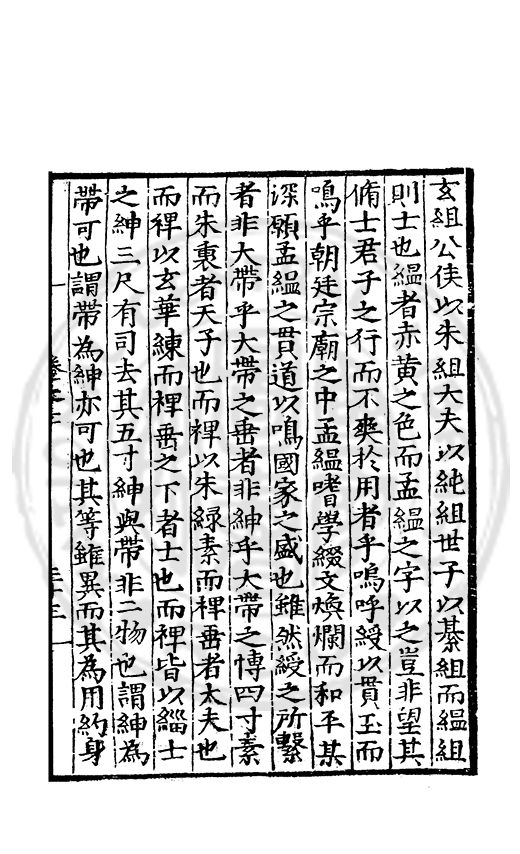 玄組公侯以朱組大夫以純組世子以綦組而縕組
則士也縕者赤黃之色而孟縕之字以之豈非望其
脩士君子之行而不爽於用者乎嗚呼綬以貫玉而
鳴乎朝廷宗廟之中孟縕嗜學綴文煥爛而和平某
深願孟縕之貫道以鳴國家之盛也雖然綬之所繫
者非大帶乎大帶之垂者非紳乎大帶之博四寸素
而朱裏者天子也而裨以朱綠素而裨垂者大夫也
而裨以玄華練而裨垂之下者士也而裨皆以緇士
之紳三尺有司去其五寸紳與帶非二物也謂紳為
帶可也謂帶為紳亦可也其等雖異而其為用約身